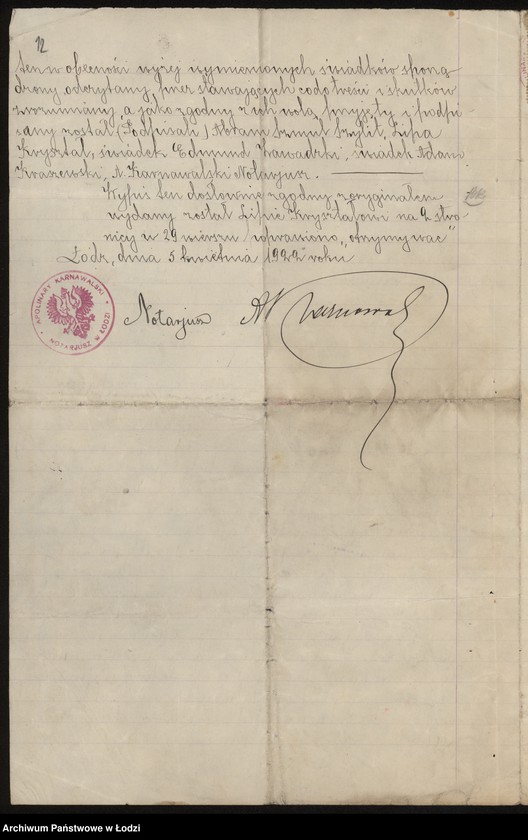 12
ten w obecności wyżej wymienionych świadków sporzą
dzony, odczytany, przez stawających co do treści i skutków
zrozumiany, a jako zgodny z ich wolą, przyjęty i podpi-
sany został. (Podpisali) Abram Szmul Szylit, Lipa
Kryształ, świadek Edmund Zawadzki, świadek Adam
Kraszewski, A. Karnawalski Notarjusz.
Wypis ten dosłownie zgodny z oryginałem
wydany został Lipie Kryształowi na 2 stro-
nicy w 29 wierszu poprawiono „otrzymywać”
Łódź, dnia 5 kwietnia 1922 roku
APOLINARY KARNAWALSKI
NOTARJUSZ W ŁODZI
Notarjusz AKarnawalski
Archiwum Państwowe w Łodzi